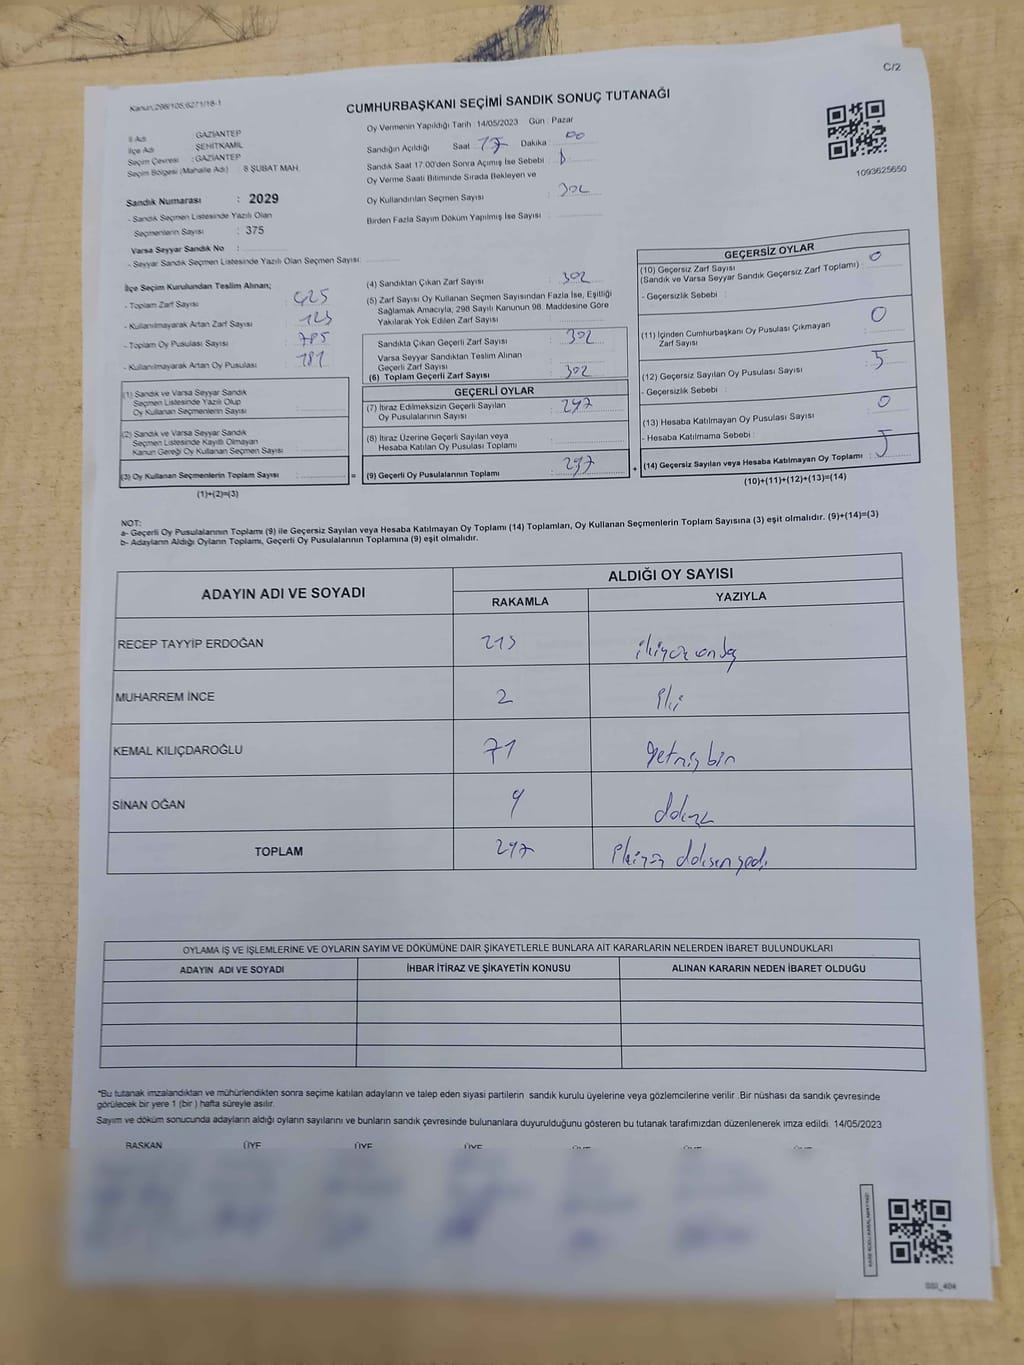 C/2
Kanun,298/105,6271/18-1
CUMHURBAŞKANI SEÇİMİ SANDIK SONUÇ TUTANAĞI
İl Adı : GAZİANTEP
İlçe Adı : ŞEHİTKAMİL
Seçim Çevresi : GAZİANTEP
Seçim Bölgesi (Mahalle Adı) : 8 ŞUBAT MAH.
Sandık Numarası : 2029
- Sandık Seçmen Listesinde Yazılı Olan
Seçmenlerin Sayısı : 375
Varsa Seyyar Sandık No :
- Seyyar Sandık Seçmen Listesinde Yazılı Olan Seçmen Sayısı:
Oy Vermenin Yapıldığı Tarih : 14/05/2023 Gün : Pazar
Sandığın Açıldığı Saat : 17 Dakika : 00
Sandık Saat 17:00'den Sonra Açımış İse Sebebi :
Oy Verme Saati Bitiminde Sırada Bekleyen ve
Oy Kullandırılan Seçmen Sayısı : 302
Birden Fazla Sayım Döküm Yapılmış İse Sayısı :
1093625650
İlçe Seçim Kurulundan Teslim Alınan;
- Toplam Zarf Sayısı : 425
- Kullanılmayarak Artan Zarf Sayısı : 123
- Toplam Oy Pusulası Sayısı :
- Kullanılmayarak Artan Oy Pusulası :
(1) Sandık ve Varsa Seyyar Sandık
Seçmen Listesinde Yazılı Olup
Oy Kullanan Seçmenlerin Sayısı :
(2) Sandık ve Varsa Seyyar Sandık
Seçmen Listesinde Kayıtlı Olmayan
Kanun Gereği Oy Kullanan Seçmen Sayısı :
(3) Oy Kullanan Seçmenlerin Toplam Sayısı :
(1)+(2)=(3)
(4) Sandıktan Çıkan Zarf Sayısı : 302
(5) Zarf Sayısı Oy Kullanan Seçmen Sayısından Fazla İse, Eşitliği
Sağlamak Amacıyla, 298 Sayılı Kanunun 98. Maddesine Göre
Yakılarak Yok Edilen Zarf Sayısı :
Sandıkta Çıkan Geçerli Zarf Sayısı : 302
Varsa Seyyar Sandıktan Teslim Alınan
Geçerli Zarf Sayısı :
(6) Toplam Geçerli Zarf Sayısı : 302
GEÇERLİ OYLAR
(7) İtiraz Edilmeksizin Geçerli Sayılan
Oy Pusulalarının Sayısı : 297
(8) İtiraz Üzerine Geçerli Sayılan veya
Hesaba Katılan Oy Pusulası Toplamı :
= (9) Geçerli Oy Pusulalarının Toplamı : 297 +
GEÇERSİZ OYLAR
(10) Geçersiz Zarf Sayısı
(Sandık ve Varsa Seyyar Sandık Geçersiz Zarf Toplamı) : 0
- Geçersizlik Sebebi :
(11) İçinden Cumhurbaşkanı Oy Pusulası Çıkmayan
Zarf Sayısı : 0
(12) Geçersiz Sayılan Oy Pusulası Sayısı : 5
- Geçersizlik Sebebi :
(13) Hesaba Katılmayan Oy Pusulası Sayısı : 0
- Hesaba Katılmama Sebebi :
(14) Geçersiz Sayılan veya Hesaba Katılmayan Oy Toplamı : 5
(10)+(11)+(12)+(13)=(14)
NOT:
a- Geçerli Oy Pusulalarının Toplamı (9) ile Geçersiz Sayılan veya Hesaba Katılmayan Oy Toplamı (14) Toplamları, Oy Kullanan Seçmenlerin Toplam Sayısına (3) eşit olmalıdır. (9)+(14)=(3)
b- Adayların Aldığı Oyların Toplamı, Geçerli Oy Pusulalarının Toplamına (9) eşit olmalıdır.
ADAYIN ADI VE SOYADI ALDIĞI OY SAYISI
RAKAMLA YAZIYLA
RECEP TAYYİP ERDOĞAN 215 ikiyüz onbeş
MUHARREM İNCE 2 iki
KEMAL KILIÇDAROĞLU 71 yetmiş bir
SİNAN OĞAN 9 dokuz
TOPLAM 297 ikiyüz doksanyedi
OYLAMA İŞ VE İŞLEMLERİNE VE OYLARIN SAYIM VE DÖKÜMÜNE DAİR ŞİKAYETLERLE BUNLARA AİT KARARLARIN NELERDEN İBARET BULUNDUKLARI
ADAYIN ADI VE SOYADI İHBAR İTİRAZ VE ŞİKAYETİN KONUSU ALINAN KARARIN NEDEN İBARET OLDUĞU
*Bu tutanak imzalandıktan ve mühürlendikten sonra seçime katılan adayların ve talep eden siyasi partilerin sandık kurulu üyelerine veya gözlemcilerine verilir .Bir nüshası da sandık çevresinde
görülecek bir yere 1 (bir ) hafta süreyle asılır.
Sayım ve döküm sonucunda adayların aldığı oyların sayılarını ve bunların sandık çevresinde bulunanlara duyurulduğunu gösteren bu tutanak tarafımızdan düzenlenerek imza edildi. 14/05/2023
BAŞKAN ÜYE ÜYE ÜYE
SSI_404